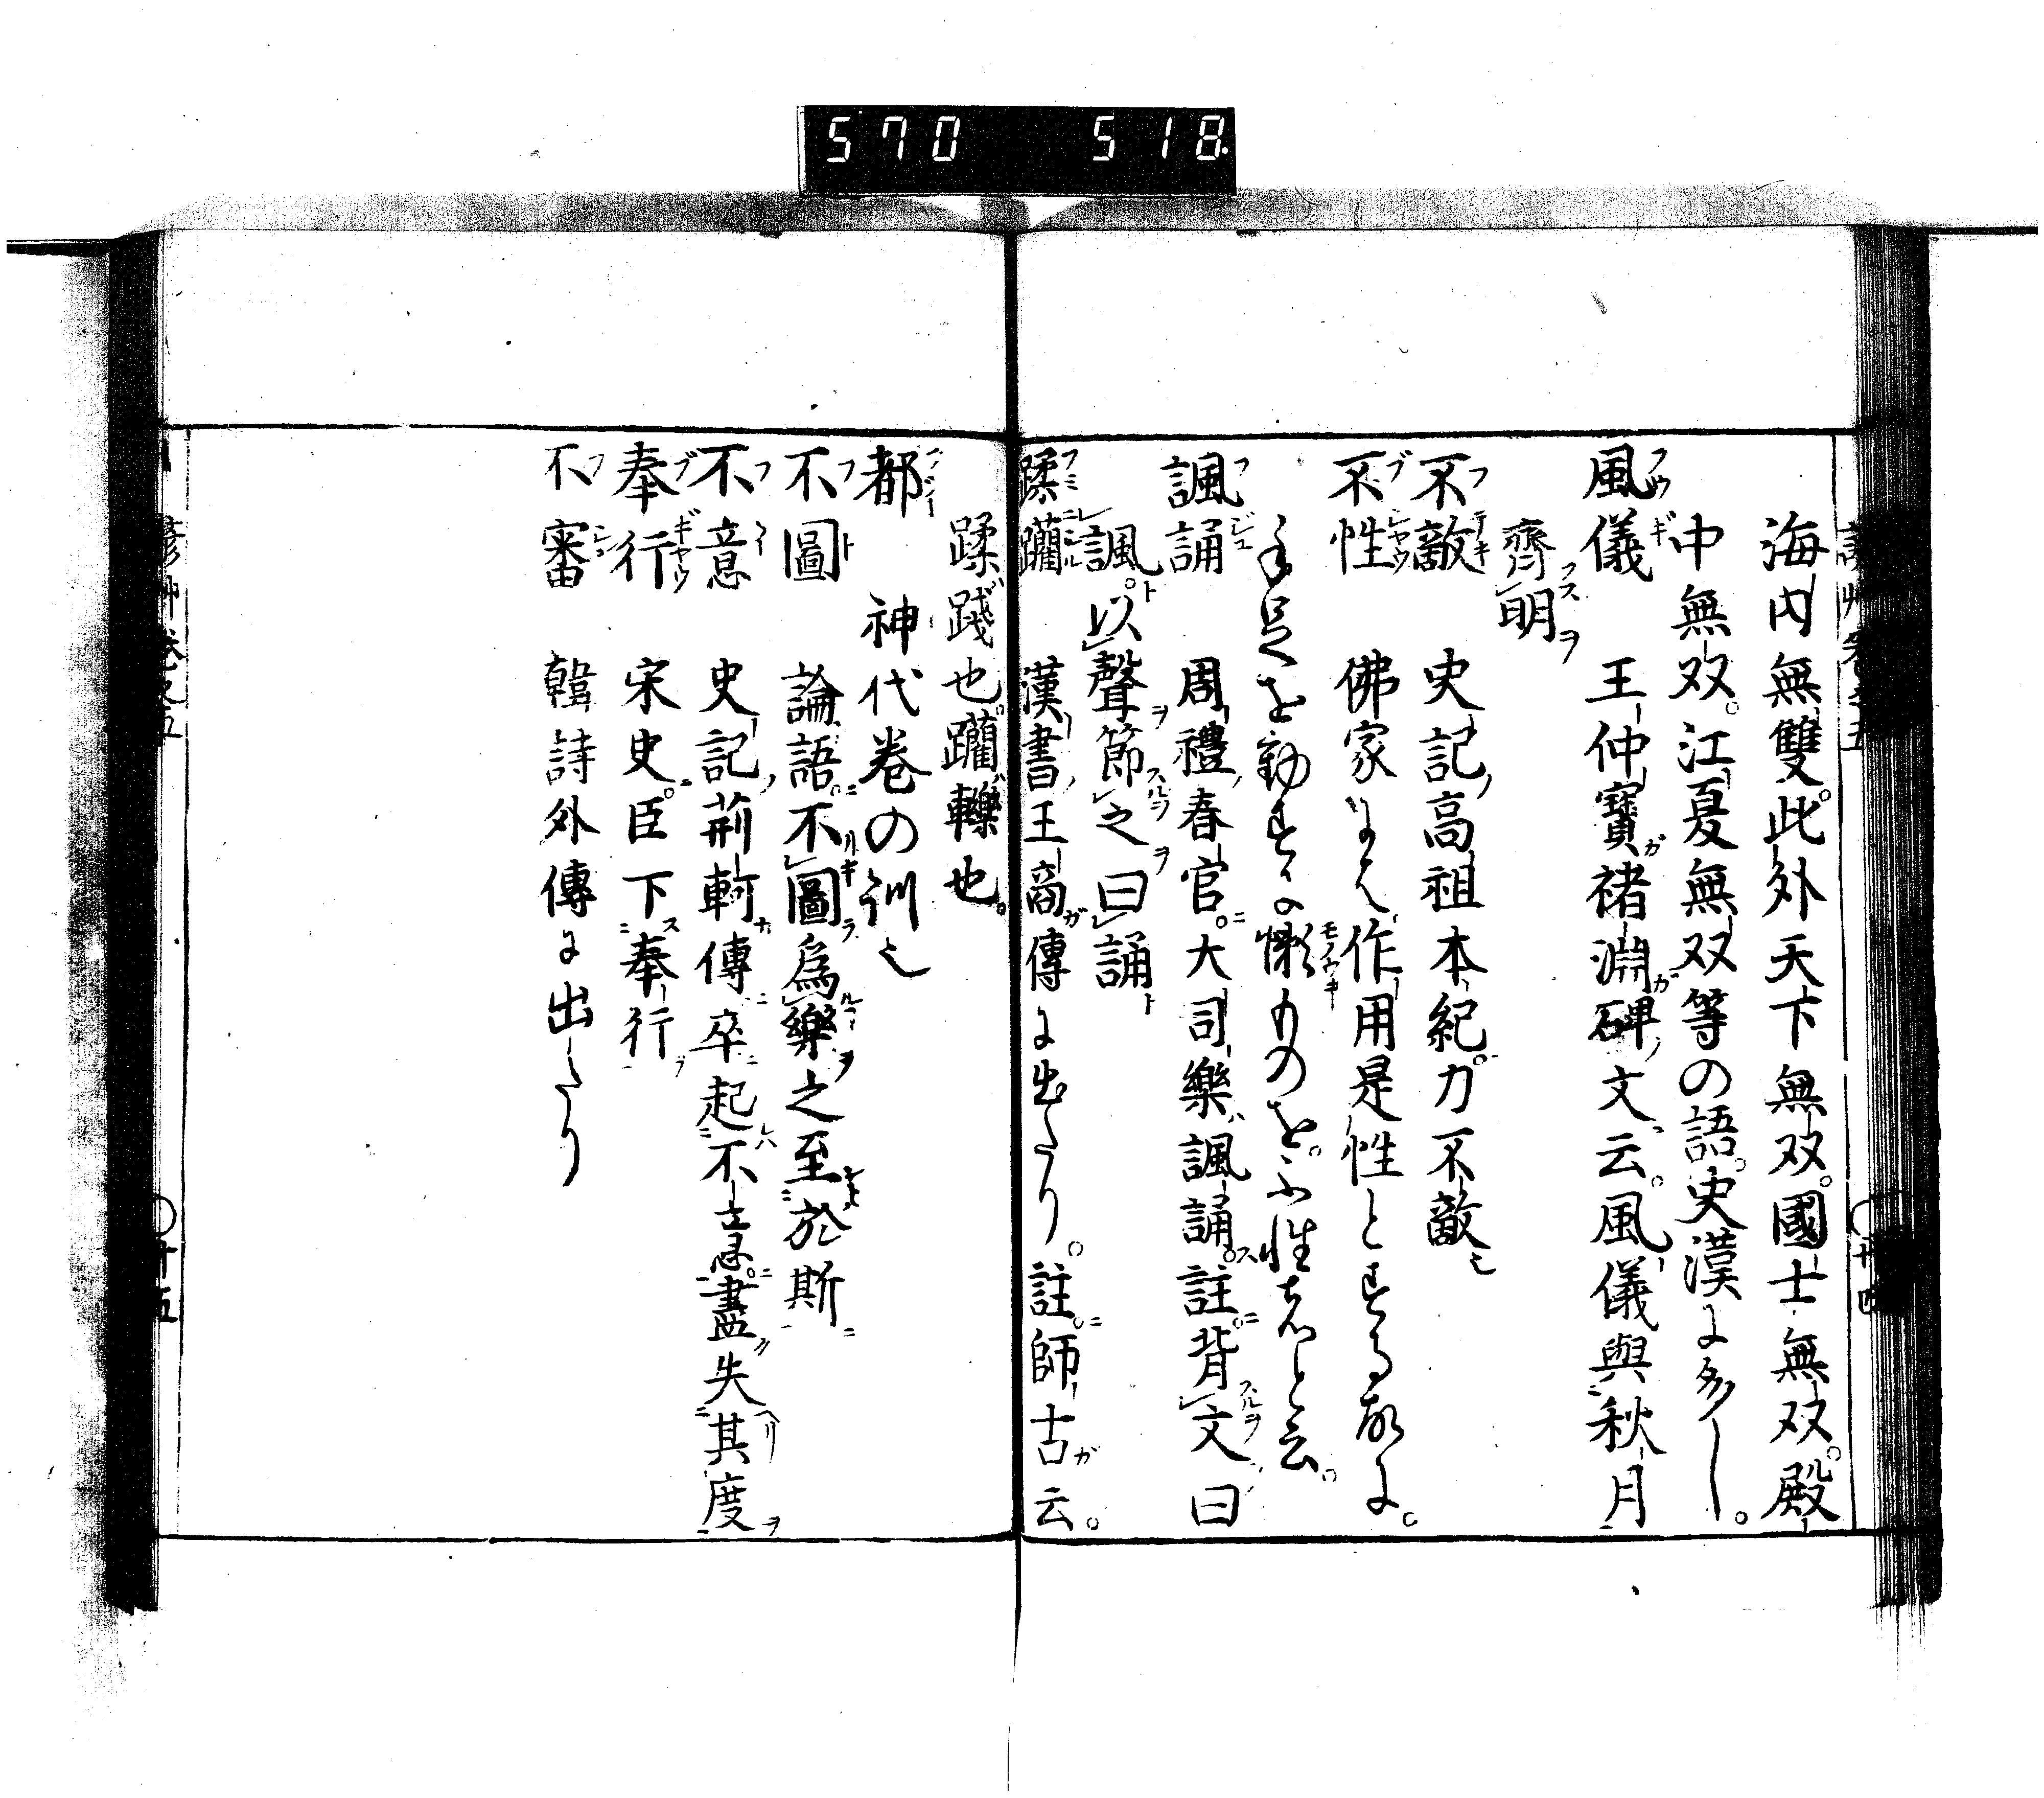 570 518
海内無雙。此外天下無双。國士無双。殿
中無双。江夏無双等の語。史漢に多し。
風儀 王仲寶褚淵碑文云。風儀與秋月
齊明
不敵 史記高祖本紀。力不敵也
不性 佛家には作用是性とする故に。
手足を動すに懶ものを。不性者と云。
諷誦 周禮春官。大司樂諷誦。註。背文曰
諷。以聲節之曰誦
蹂躪 漢書王商傳に出たり。註。師古云。
蹂踐也。躪轢也。
都 神代巻の訓也
不圖 論語。不圖爲樂之至於斯
不意 史記荊軻傳卒起不意。盡失其度
奉行 宋史。臣下奉行
不審 韓詩外傳に出たり
諺艸巻之五 〇十五